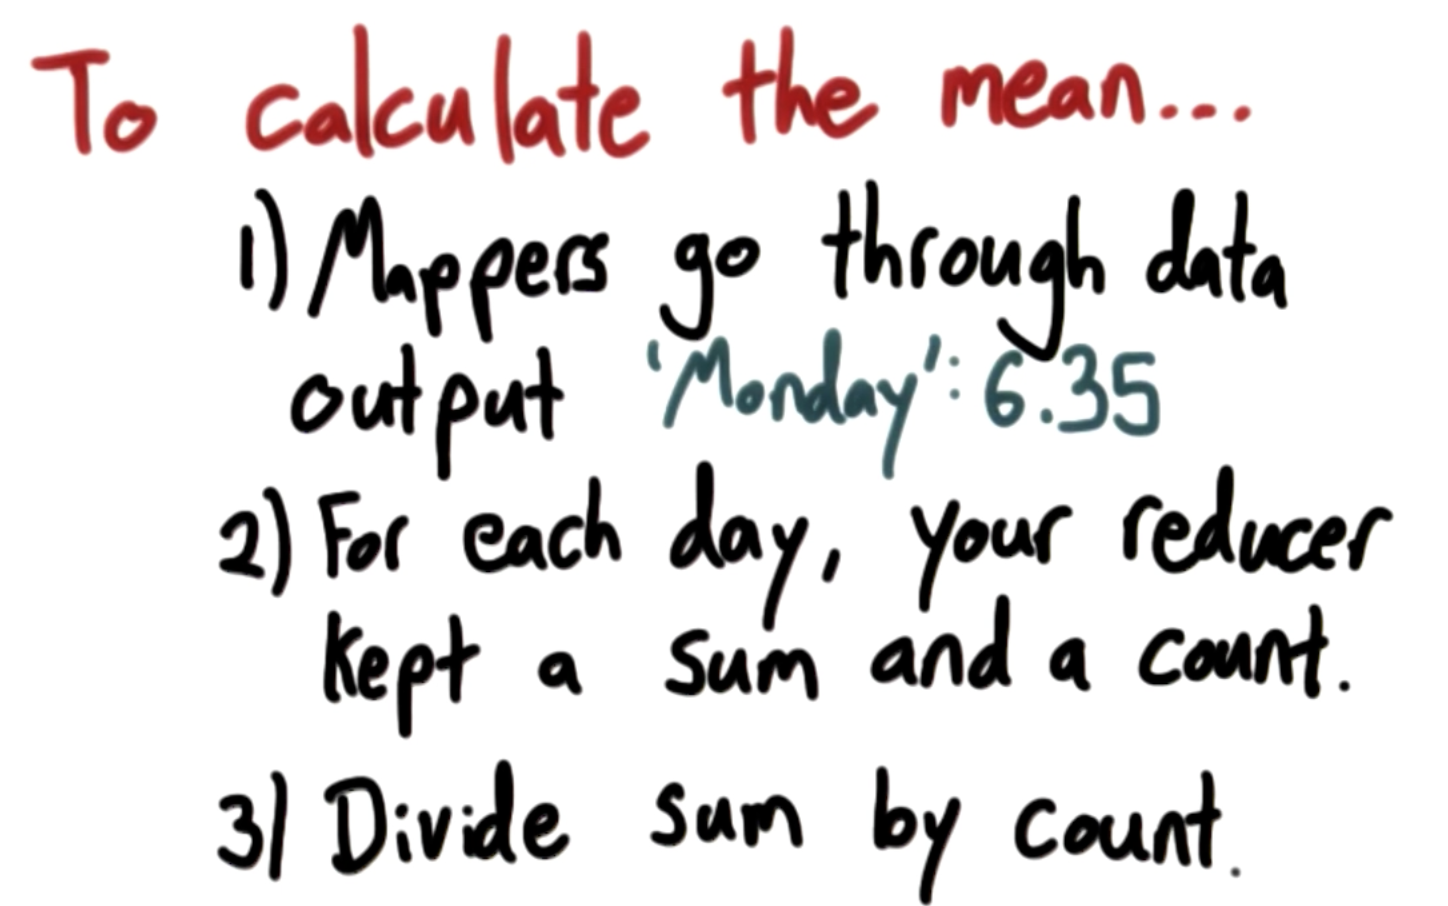 To calculate the mean...
1) Mappers go through data
output 'Monday': 6.35
2) For each day, your reducer
kept a sum and a count.
3) Divide sum by count.